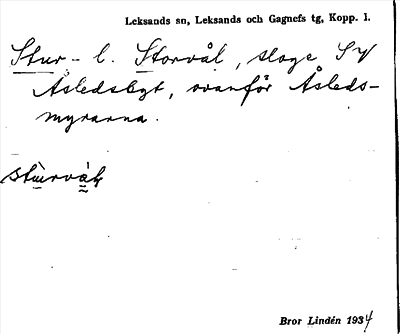 Leksands sn, Leksands och Gagnefs tg, Kopp. l.
Stur- l. Storvål, sloge SV
Åsledsbyt, ovanför Åsleds-
myrarna.
stùrvàl
Bror Lindén 1934